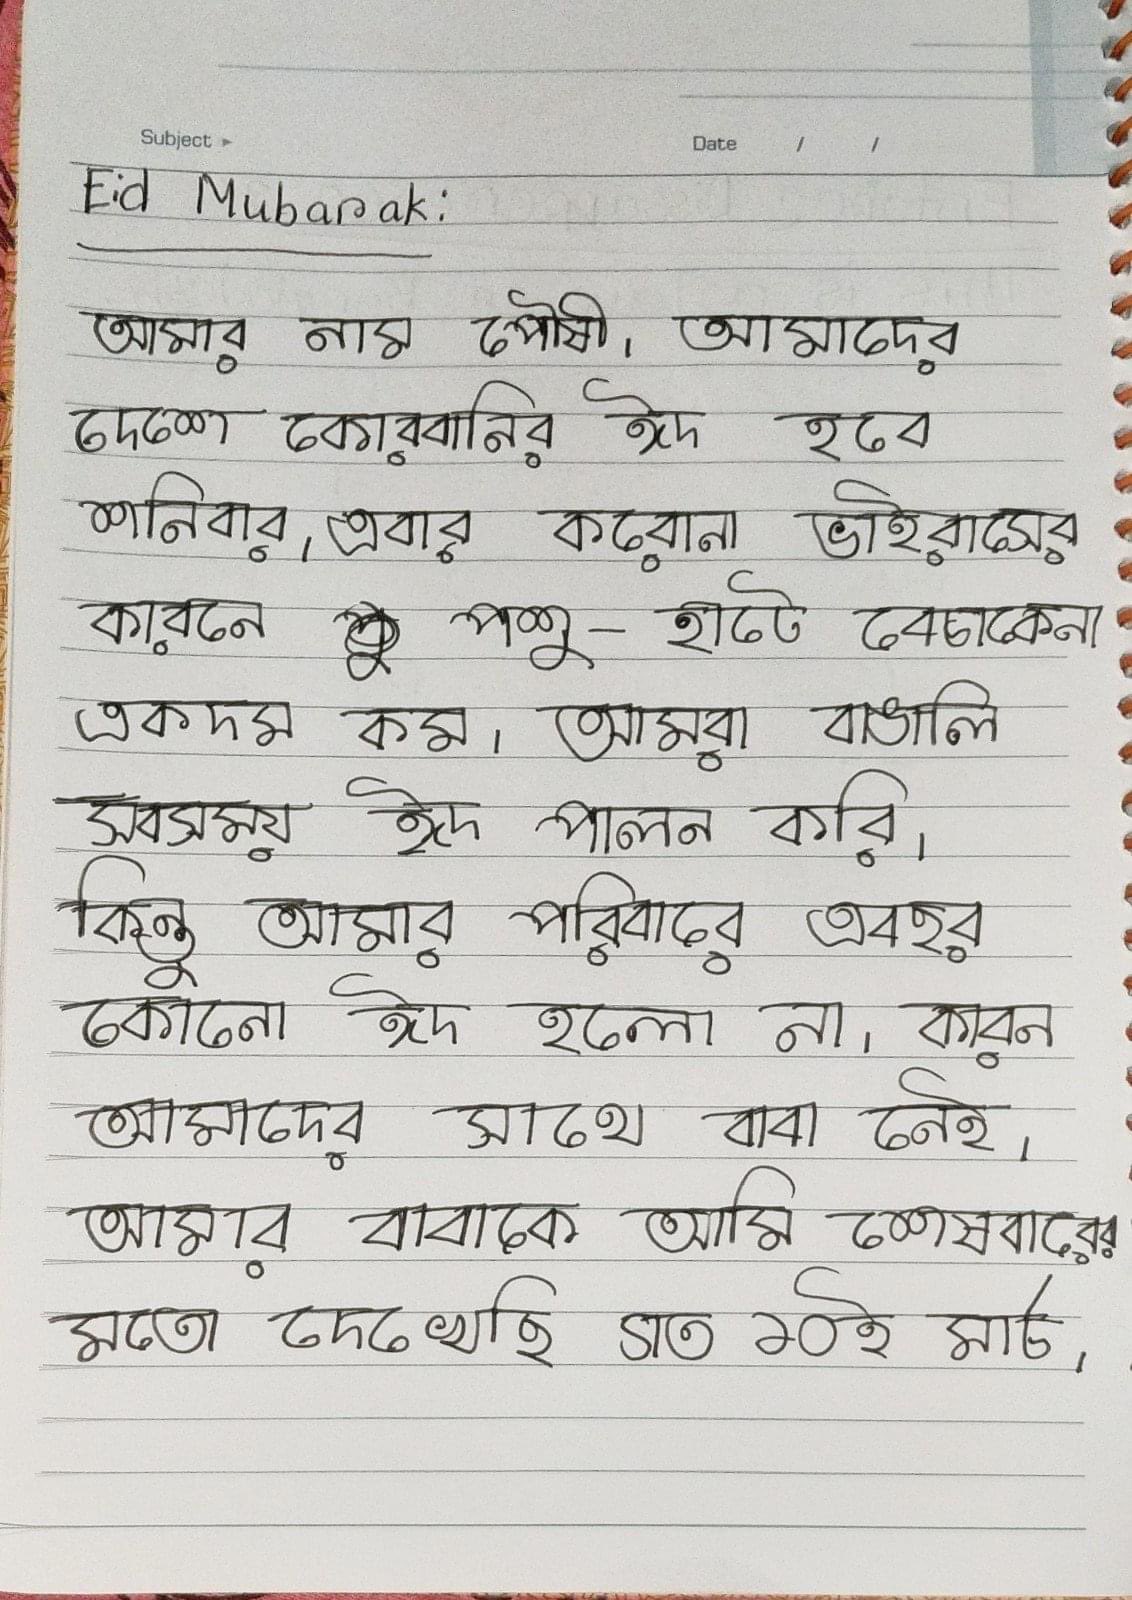 Subject ▸ Date / /
Eid Mubarak:
আমার নাম পৌষী। আমাদের
দেশে কোরবানির ঈদ হবে
শনিবার। এবার করোনা ভাইরাসের
কারনে পশু - হাটে বেচাকেনা
একদম কম। আমরা বাঙালি
সবসময় ঈদ পালন করি।
কিন্তু আমার পরিবারে এবছর
কোনো ঈদ হলো না। কারন
আমাদের সাথে বাবা নেই।
আমার বাবাকে আমি শেষবারের
মতো দেখেছি গত ১০ই মার্চ।